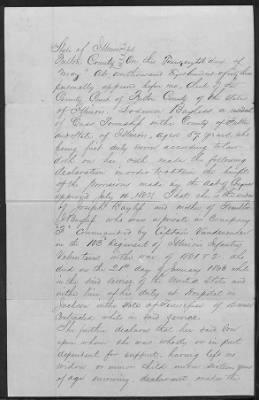 State of Illinois
Fulton County On this Twenty eighth day of
May AD. one thousand Eight hundred &
personally appeared before me, Clerk of the
County Court of Fulton County of the State
of Illinois, Bayless a resident
of Cass Township in the County of Fulton
and State of Illinois, aged 57 years, who
being first duly sworn according to law
doth on her oath made the following
declaration in order to obtain the benefit
of the provisions made by the Act of Congress
approved July 14 1862, That she is the
of Joseph Bayless and mother of Franklin
Bayless who was a private in Company
commanded by Captain
in the 103d Regiment of Illinois Infantry
Volunteers in the war of 1861 &2 who
died on the 21st day of January 1863 while
in the said service of the United States and
in the line of his duty at Hospital in
Jackson in the State of Tennessee of disease
contracted while in said service
She further declares that her said Son
upon whom she was wholly or in part
dependent for support, having left no
widow or minor child under sixteen years
of age surviving, declarant makes the